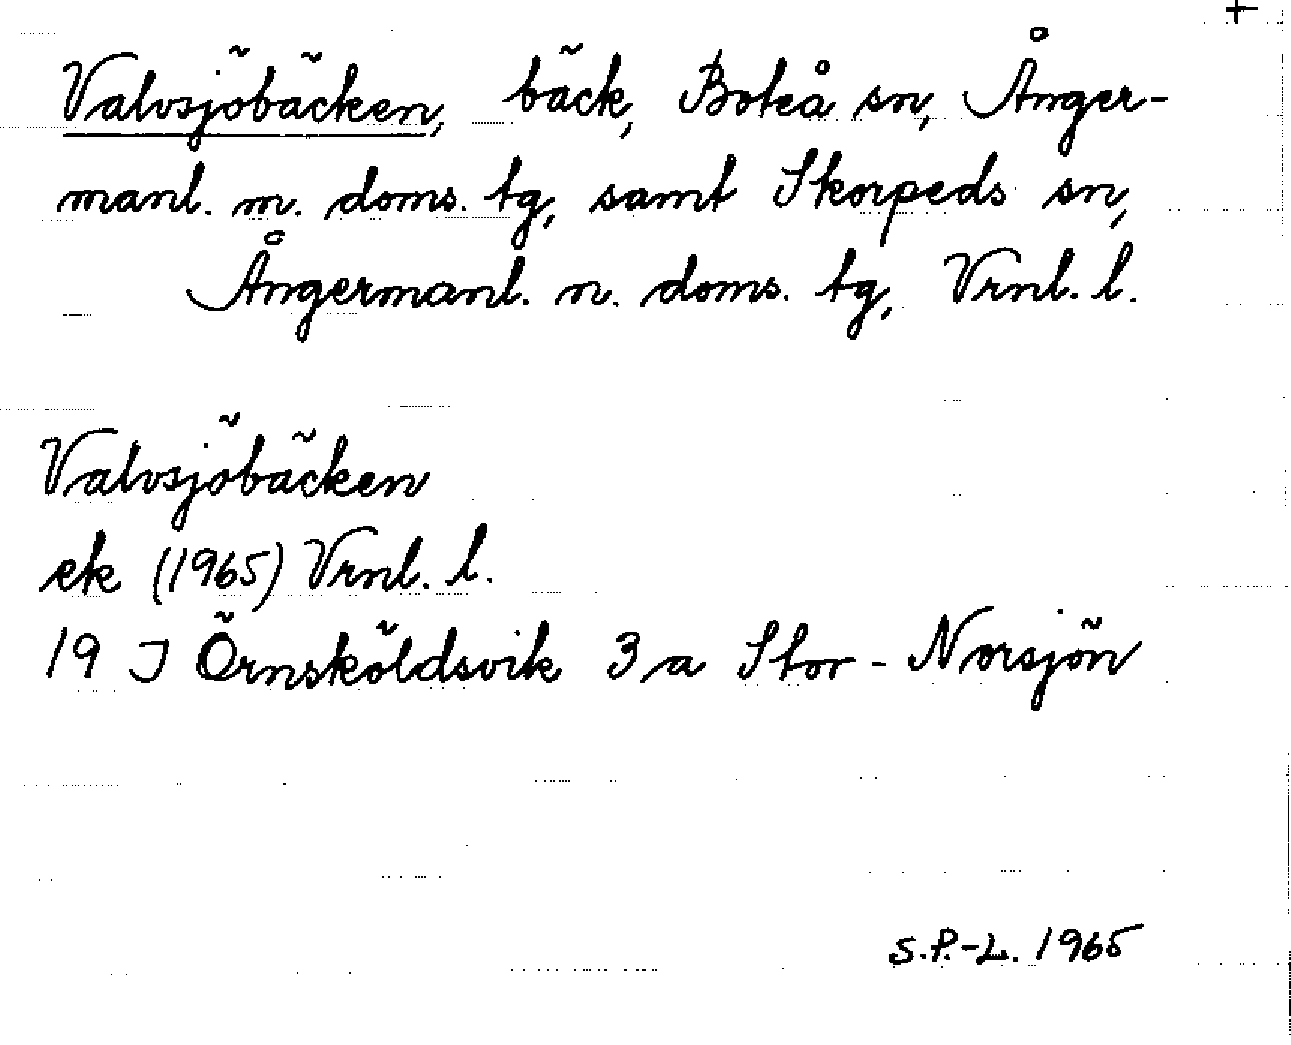 +
Valvsjöbäcken, bäck, Boteå sn, Ånger-
manl. m. doms. tg, samt Skorpeds sn,
Ångermanl. n. doms. tg, Vrnl. l.
Valvsjöbäcken
ek (1965) Vrnl. l.
19 J Örnsköldsvik 3 a Stor-Norsjön
S.P.-L. 1965